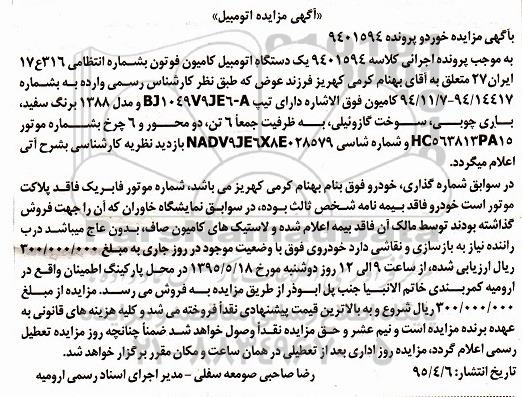 «آگهی مزایده اتومبیل»
بآگهی مزایده خودرو پرونده ۹۴۰۱۵۹۴
به موجب پرونده اجرائی کلاسه ۹۴۰۱۵۹۴ یک دستگاه اتومبیل کامیون فوتون بشماره انتظامی ۳۱۶ع۱۷
ایران۲۷ متعلق به آقای بهنام کرمی کهریز فرزند عوض که طبق نظر کارشناس رسمی وارده به بشماره
۹۴/۱۴۴۱۷-۹۴/۱۱/۷ کامیون فوق الاشاره دارای تیپ BJ۱۰۴۹V۹JE۶-A و مدل ۱۳۸۸ برنگ سفید،
باری چوبی، سوخت گازوئیلی، به ظرفیت جمعاً ۶ تن، دو محور و ۶ چرخ بشماره موتور
HC۵۶۳۸۱۳PA۱۵ و شماره شاسی NADV۹JE۶X۸E۰۲۸۵۷۹ بازدید نظریه کارشناسی بشرح آتی
اعلام میگردد.
در سوابق شماره گذاری، خودرو فوق بنام بهنام کرمی کهریز می باشد، شماره موتور فابریک فاقد پلاکت
موتور است خودرو فاقد بیمه نامه شخص ثالث بوده، در سوابق نمایشگاه خاوران که آن را جهت فروش
گذاشته بودند توسط مالک آن فاقد بیمه اعلام شده و لاستیک های کامیون صاف، بدون عاج میباشد درب
راننده نیاز به بازسازی و نقاشی دارد خودروی فوق با وضعیت موجود در روز جاری به مبلغ ۳۰۰/۰۰۰/۰۰۰
ریال ارزیابی شده، از ساعت ۹ الی ۱۲ روز دوشنبه مورخ ۱۳۹۵/۵/۱۸ در محل پارکینگ اطمینان واقع در
ارومیه کمربندی خاتم الانبیا جنب پل ابوذر از طریق مزایده به فروش می رسد. مزایده از مبلغ
۳۰۰/۰۰۰/۰۰۰ ریال شروع و به بالاترین قیمت پیشنهادی نقداً فروخته می شد و کلیه هزینه های قانونی به
عهده برنده مزایده است و نیم عشر و حق مزایده نقداً وصول خواهد شد ضمناً چنانچه روز مزایده تعطیل
رسمی اعلام گردد، مزایده روز اداری بعد از تعطیلی در همان ساعت و مکان مقرر برگزار خواهد شد.
تاریخ انتشار: ۹۵/۴/۶ رضا صاحبی صومعه سفلی - مدیر اجرای اسناد رسمی ارومیه